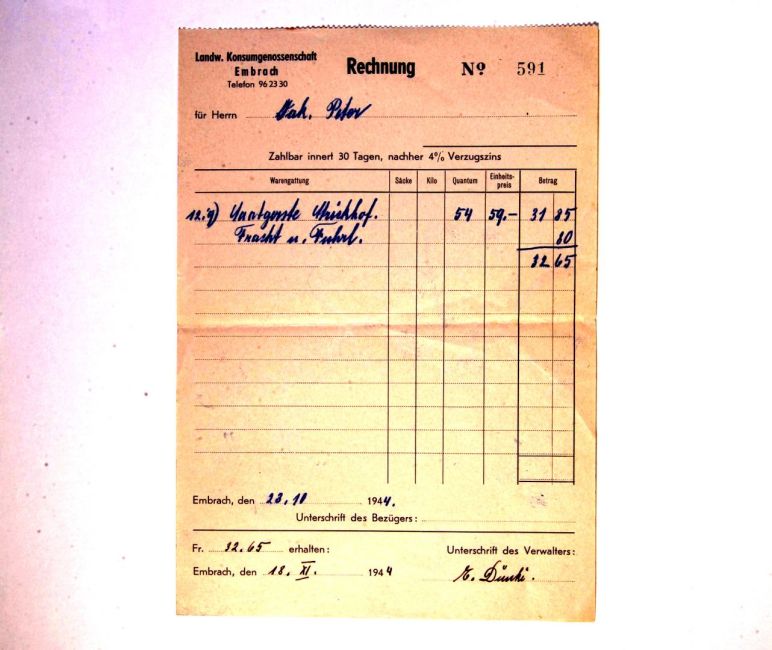 Landw. Konsumgenossenschaft
Embrach
Telefon 96 23 30
Rechnung
Nº 591
für Herrn Jak. Peter
Zahlbar innert 30 Tagen, nachher 4% Verzugszins
Warengattung Säcke Kilo Quantum Einheits-preis Betrag
Saatgerste 54 59.— 31 85
Fracht u. Fuhrl. 80
32 65
Embrach, den 23.10 1944.
Unterschrift des Bezügers:
Fr. 32.65 erhalten: Unterschrift des Verwalters:
Embrach, den 18. XI. 1944 Dünki.